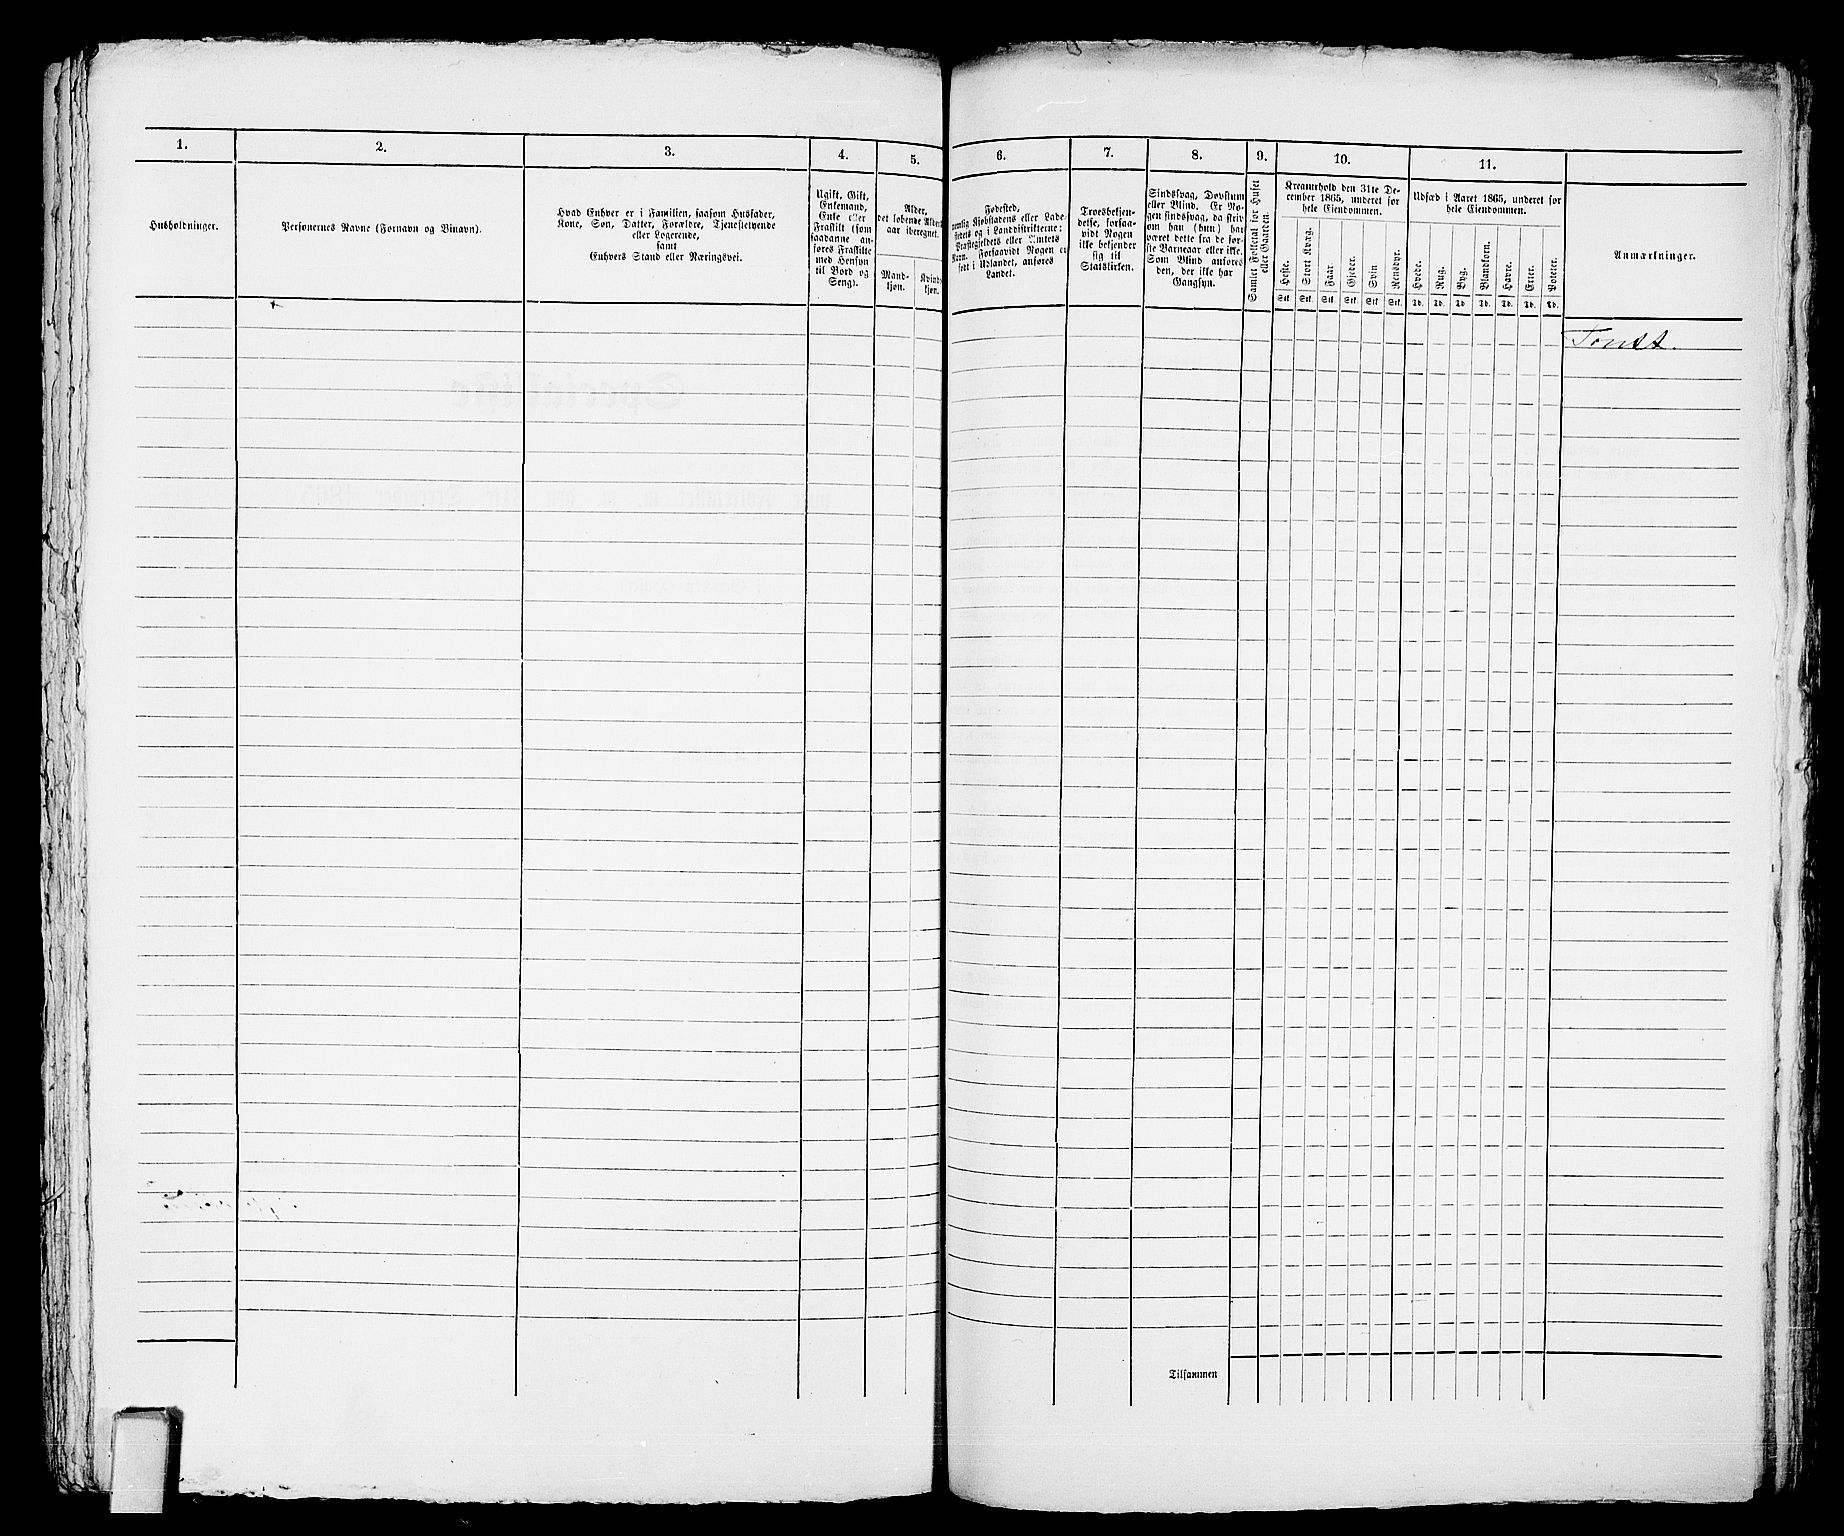 1.
Husholdninger.
2.
Personernes Navne (Fornavn og Binavn).
3.
Hvad Enhver er i Familien, saasom Husfader,
Kone, Søn, Datter, Forældre, Tjenestetyende
eller Logerende,
samt
Enhvers Stand eller Næringsvei.
4.
Ugift, Gift,
Enkemand,
Enke eller
Fraskilt (som
saadanne an-
føres Fraskilte
med Hensyn
til Bord og
Seng).
5.
Alder,
det løbende Alders-
aar iberegnet.
Mand-
kjøn.
Kvind-
kjøn.
6.
Fødested,
nemlig Kjøbstadens eller Lade-
stedets og i Landdistrikterne:
Præstegjeldets eller Amtets
Navn. Forsaavidt Nogen er
født i Udlandet, anføres
Landet.
7.
Troesbekjen-
delse, forsaa-
vidt Nogen
ikke bekjender
sig til
Statskirken.
8.
Sindssvag, Døvstum
eller Blind. Er No-
gen sindssvag, da skriv
om han (hun) har
været dette fra de før-
ste Barneaar eller ikke.
Som Blind anføres
den, der ikke har
Gangsyn.
9.
Samlet Folketal for Huset
eller Gaarden.
10.
Kreaturhold den 31te De-
cember 1865, underet for
hele Eiendommen.
Heste.
Stort Kvæg.
Faar.
Gjeder.
Svin
Rensdyr.
Stk. Stk. Stk. Stk. Stk. Stk.
11.
Udsæd i Aaret 1865, underet for
hele Eiendommen.
Hvede.
Rug.
Byg.
Blandkorn.
Havre.
Erter.
Poteter.
Td. Td. Td. Td. Td. Td. Td.
Anmærkninger.
Tomt.
Tilsammen